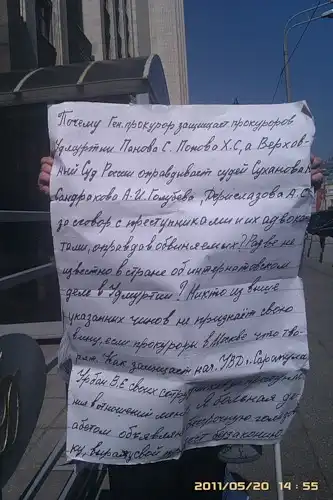 Почему Ген.прокурор защищает прокуроров
Удмуртии Панова С. Попова Х.С, а Верхов-
ный Суд России оправдывает судей Суханова
Сандракова А.И. Голубева,
за сговор с преступниками и их адвока-
тами, оправдав обвиняемых? Разве не
известно в стране об интернатовском
деле в Удмуртии? Никто из выше
указанных чинов не признаёт свою
вину, если прокуроры в Москве что тво-
рят. Как защищает нач. УВД г. Сарапула
Урбан В.Е своих
ния в отношении меня. Я больная ди-
абетом объявляю голодов-
ку, выражу свой
2011/05/20 14:55